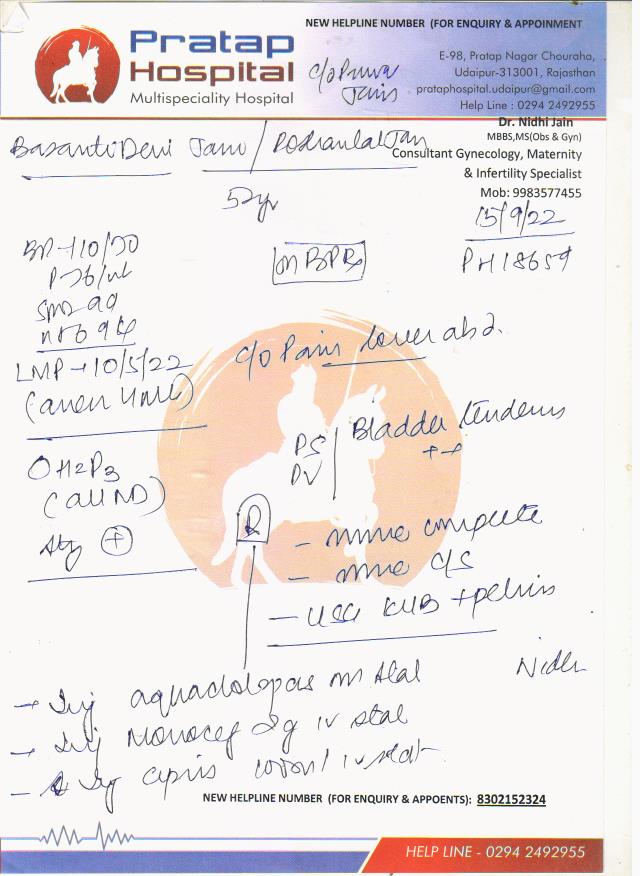 NEW HELPLINE NUMBER (FOR ENQUIRY & APPOINMENT
Pratap
Hospital
Multispeciality Hospital
c/o
Jain
E-98, Pratap Nagar Chouraha,
Udaipur-313001, Rajasthan
prataphospital.udaipur@gmail.com
Help Line : 0294 2492955
Dr. Nidhi Jain
MBBS,MS(Obs & Gyn)
Consultant Gynecology, Maternity
& Infertility Specialist
Mob: 9983577455
Basanti Devi Jain /
52yr
15/9/22
PH18659
BP - 110/70
on BP Rx
LMP - 10/5/22
c/o Pain lower abd.
PS
PV
Bladder tenderness
++
(all ND)
+
R
- urine complete
- urine c/s
- USG KUB + pelvis
Nidhi
- Inj im stat
- Inj Monocef 2g iv stat
- Inj 100ml iv stat
NEW HELPLINE NUMBER (FOR ENQUIRY & APPOENTS): 8302152324
HELP LINE - 0294 2492955